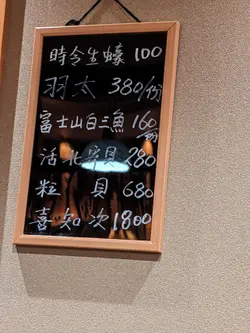 時令生蠔 100
羽太 380/份
富士山白三魚 160/份
活北寄貝 280
粒 貝 680
喜知次 1800